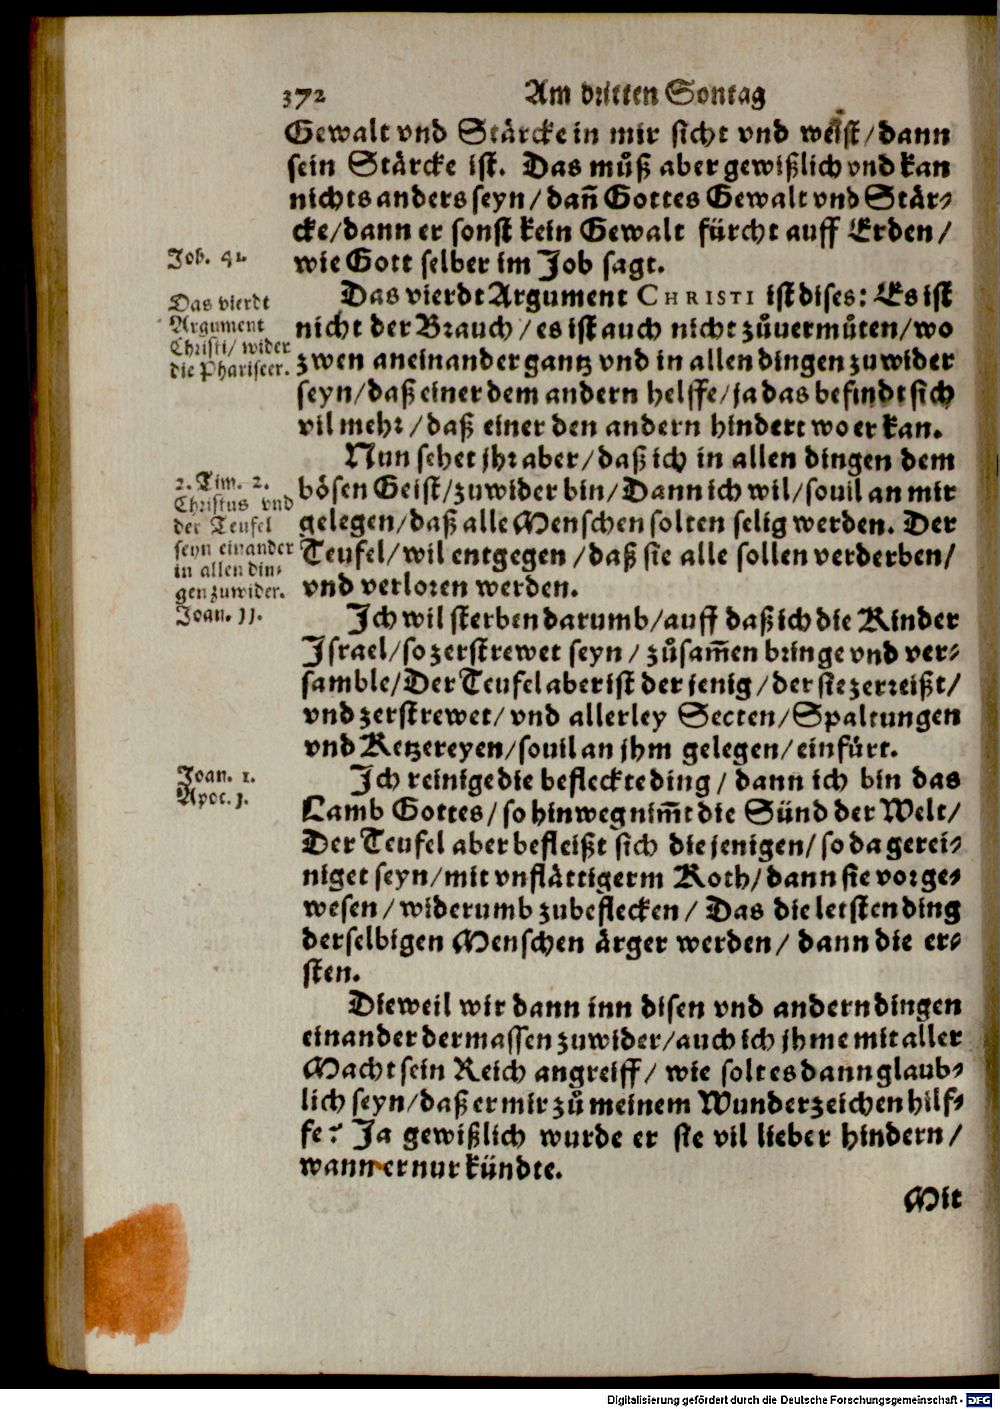 372 Am dritten Sontag
Gewalt vnd Stärcke in mir sicht vnd weist/dann
sein Stärcke ist. Das můß aber gewißlich vnd kan
nichts anders seyn/dañ Gottes Gewalt vnd Stär⸗
cke/dann er sonst kein Gewalt fürcht auff Erden/
wie Gott selber im Job sagt.
Job. 41.
Das vierdt Argument CHRISTI ist dises: Es ist
nicht der Brauch/es ist auch nicht zůuermůten/wo
zwen aneinander gantz vnd in allen dingen zuwider
seyn/daß einer dem andern helffe/ja das befindt sich
vil mehr/daß einer den andern hindert wo er kan.
Das vierdt
Argument
Christi/ wider
die Phariseer.
Nun sehet jhr aber/daß ich in allen dingen dem
bösen Geist/zuwider bin/Dann ich wil/souil an mir
gelegen/daß alle Menschen solten selig werden. Der
Teufel/wil entgegen/daß sie alle sollen verderben/
vnd verloren werden.
2. Tim. 2.
Christus vnd
der Teufel
seyn einander
in allen din⸗
gen zuwider.
Joan. 11.
Ich wil sterben darumb/auff daß ich die Kinder
Israel/so zerstrewet seyn/zůsam̃en bringe vnd ver⸗
samble/Der Teufel aber ist der jenig/der sie zerreißt/
vnd zerstrewet/vnd allerley Secten/Spaltungen
vnd Ketzereyen/souil an jhm gelegen/einfürt.
Ich reinige die befleckte ding/dann ich bin das
Lamb Gottes/so hinweg nim̃t die Sünd der Welt/
Der Teufel aber befleißt sich die jenigen/so da gerei⸗
niget seyn/mit vnflättigerm Koth/dann sie vor ge⸗
wesen/widerumb zubeflecken/Das die letsten ding
derselbigen Menschen ärger werden/dann die er⸗
sten.
Joan. 1.
Apoc. 1.
Dieweil wir dann inn disen vnd andern dingen
einander dermassen zuwider/auch ich jhme mit aller
Macht sein Reich angreiff/wie solt es dann glaub⸗
lich seyn/daß er mir zů meinem Wunderzeichen hilf⸗
fe? Ja gewißlich wurde er sie vil lieber hindern/
wann er nur kündte.
Mit
Digitalisierung gefördert durch die Deutsche Forschungsgemeinschaft - DFG